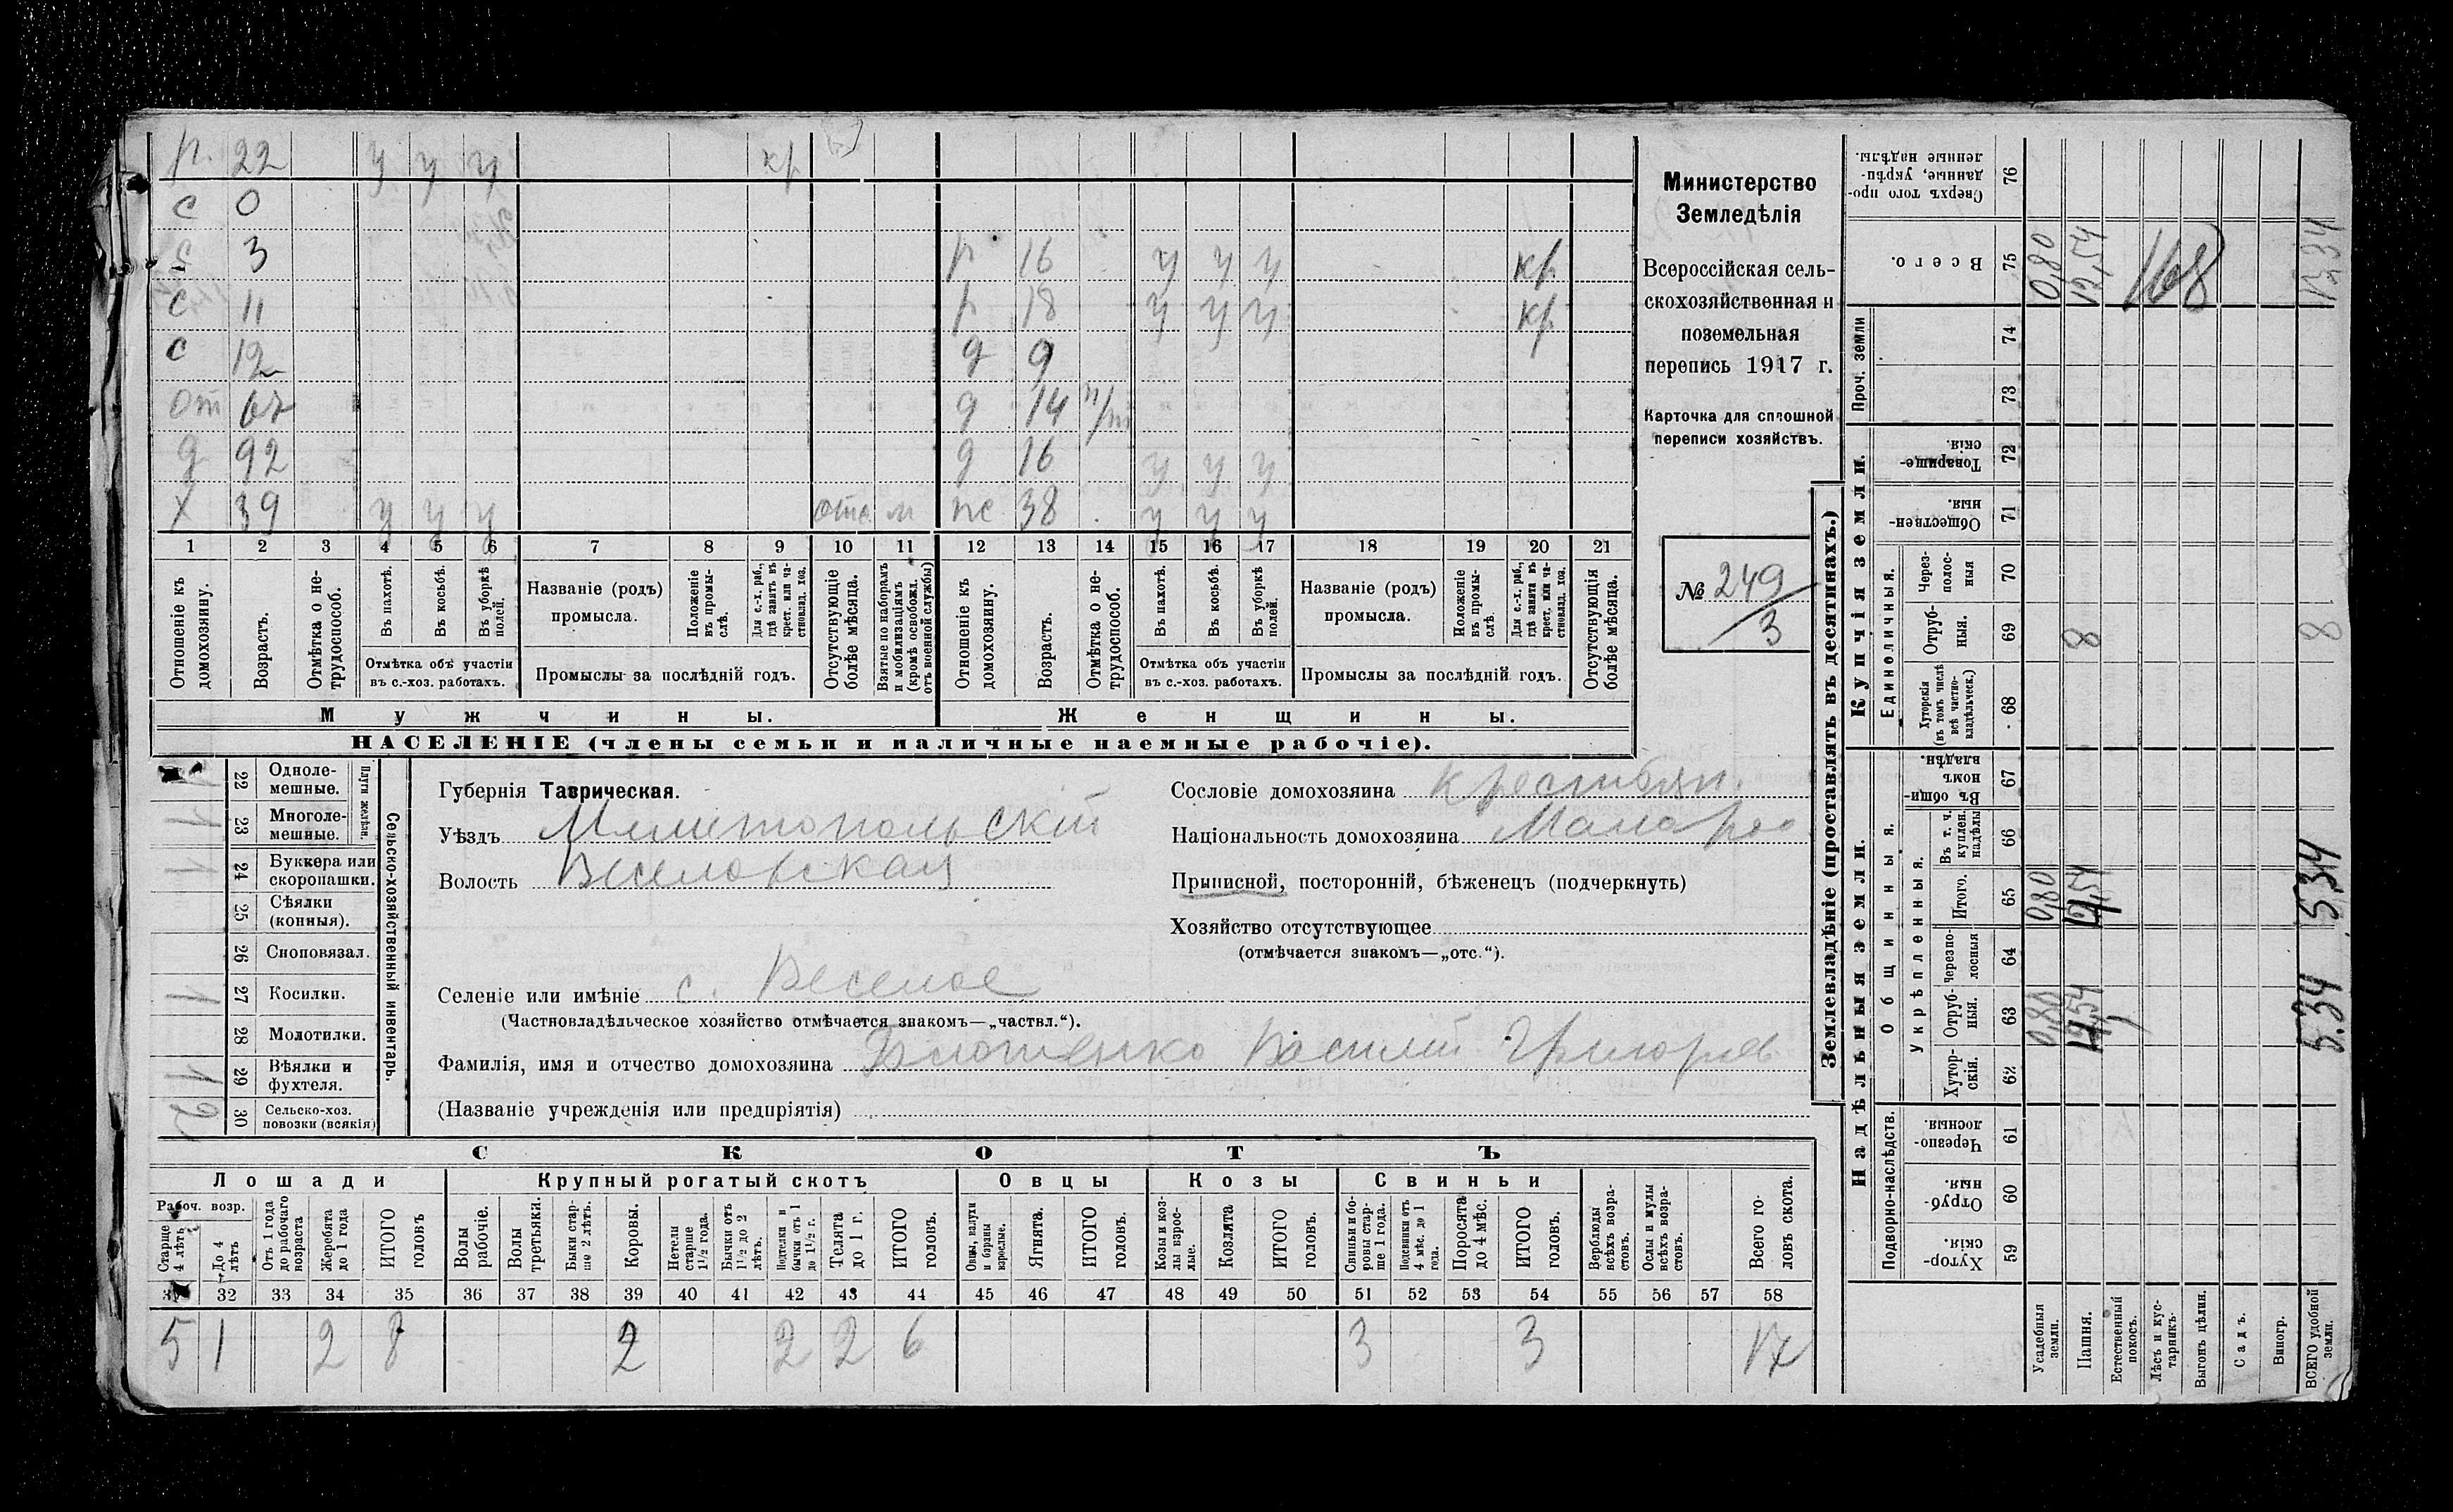 р. 22 у у у кр
с 0
с 3 р 16 у у у кр
с 11 р 18 у у у кр
с 12 д 9
от 67 д 14 н/т
д 92 д 16 у у у
х 39 у у у отс. м пс 38 у у у
1 2 3 4 5 6 7 8 9 10 11 12 13 14 15 16 17 18 19 20 21
Отношеніе къ домохозяину.
Возрастъ.
Отмѣтка о нетрудоспособ.
Въ пахотѣ.
Въ косьбѣ.
Въ уборкѣ полей.
Отмѣтка объ участіи въ с.-хоз. работахъ.
Названіе (родъ) промысла.
Положеніе въ промыслѣ.
Для с.-х. раб., гдѣ занятъ въ крест. или частновлад. хоз.
Промыслы за послѣдній годъ.
Отсутствующіе болѣе мѣсяца.
Взятые по наборамъ и мобилизаціямъ (кромѣ освобожд. отъ военной службы)
Отношеніе къ домохозяину.
Возрастъ.
Отмѣтка о нетрудоспособ.
Въ пахотѣ.
Въ косьбѣ.
Въ уборкѣ полей.
Отмѣтка объ участіи въ с.-хоз. работахъ.
Названіе (родъ) промысла.
Положеніе въ промыслѣ.
Для с.-х. раб., гдѣ занята въ крест. или частновлад. хоз.
Промыслы за послѣдній годъ.
Отсутствующія болѣе мѣсяца.
Мужчины.
Женщины.
НАСЕЛЕНІЕ (члены семьи и наличные наемные рабочіе).
Министерство
Земледѣлія
Всероссійская сель-
скохозяйственная и
поземельная
перепись 1917 г.
Карточка для сплошной
переписи хозяйствъ.
№ 249/3
22 Однолемешные.
23 Многолемешные.
Плуги желѣзн.
24 Буккера или скоропашки.
25 Сѣялки (конныя).
26 Сноповязал.
27 Косилки.
28 Молотилки.
29 Вѣялки и фухтеля.
30 Сельско-хоз. повозки (всякія)
Сельско-хозяйственный инвентарь.
1
1
1
1
2
Губернія Таврическая.
Уѣздъ Мелитопольскій
Волость Веселовская
Селеніе или имѣніе с. Веселое
(Частновладѣльческое хозяйство отмѣчается знакомъ—„частвл.“).
Фамилія, имя и отчество домохозяина Василій Григорьев
(Названіе учрежденія или предпріятія)
Сословіе домохозяина крестьян.
Національность домохозяина Малорос
Приписной, посторонній, бѣженецъ (подчеркнуть)
Хозяйство отсутствующее
(отмѣчается знакомъ—„отс.“).
СКОТЪ
Лошади Крупный рогатый скотъ Овцы Козы Свиньи
Рабоч. возр.
Старше 4 лѣтъ
До 4 лѣтъ
Отъ 1 года до рабочаго возраста
Жеребята до 1 года
ИТОГО головъ
Волы рабочіе.
Волы третьяки.
Быки старше 2 лѣтъ.
Коровы.
Нетели старше 1½ года.
Бычки отъ 1½ до 2 лѣтъ.
Подтелки и бычки отъ 1 до 1½ г.
Телята до 1 г.
ИТОГО головъ.
Овцы, валухи и бараны взрослые.
Ягнята.
ИТОГО головъ.
Козы и козлы взрослые.
Козлята
ИТОГО головъ.
Свиньи и боровы старше 1 года.
Подсвинки отъ 4 мѣс. до 1 года.
Поросята до 4 мѣс.
ИТОГО головъ.
Верблюды всѣхъ возрастовъ.
Ослы и мулы всѣхъ возрастовъ.
Всего головъ скота.
32 33 34 35 36 37 38 39 40 41 42 43 44 45 46 47 48 49 50 51 52 53 54 55 56 57 58
5 1 2 8 2 2 2 6 3 3 17
Землевладѣніе (проставлять въ десятинахъ.)
Надѣльныя земли.
Купчія земли.
Подворно-наслѣдств.
Общинныя.
Укрѣпленныя.
Единоличныя.
Проч. земли
59 Хуторскія.
60 Отрубныя.
61 Черезполосныя.
62 Хуторскія.
63 Отрубныя.
64 Черезполосныя
65 Итого.
66 Въ т. ч. куплен. надѣлы
67 Въ общинномъ владѣн.
68 Хуторскія (въ томъ числѣ всѣ частновладѣльческ.)
69 Отрубныя.
70 Черезполосныя
71 Общественныя.
72 Товарищескія.
73
74
75 Всего.
76 Сверхъ того проданные, укрѣпленные надѣлы.
Усадебныя земли.
Пашня.
Естественный покосъ.
Лѣсъ и кустарникъ.
Выгонъ цѣлин.
Садъ.
Виногр.
ВСЕГО удобной земли.
0,80 0,80 0,80
8 12,54
168
5.34 5.34 8